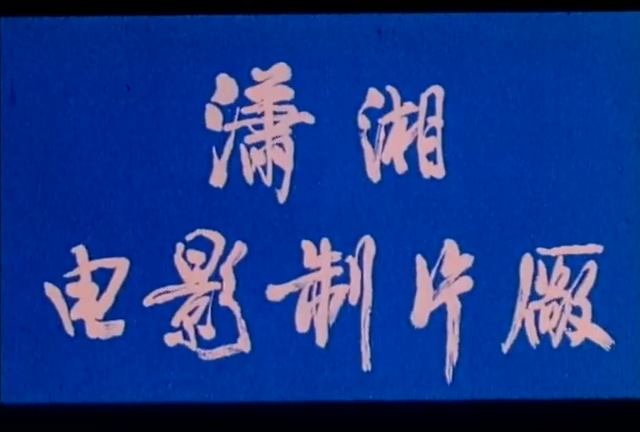 潇湘
电影制片廠